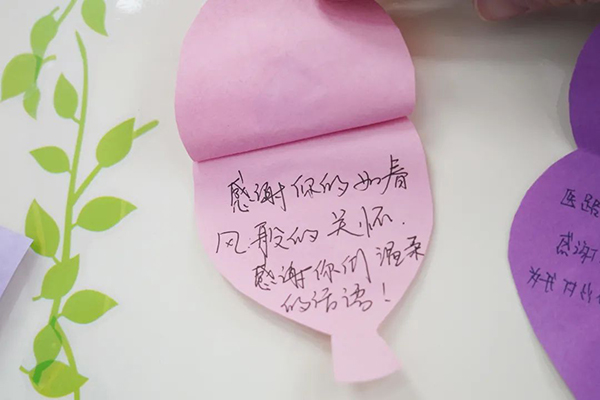 感谢你的如春
风般的关怀.
感谢你们温柔
的话语!
医路
感谢